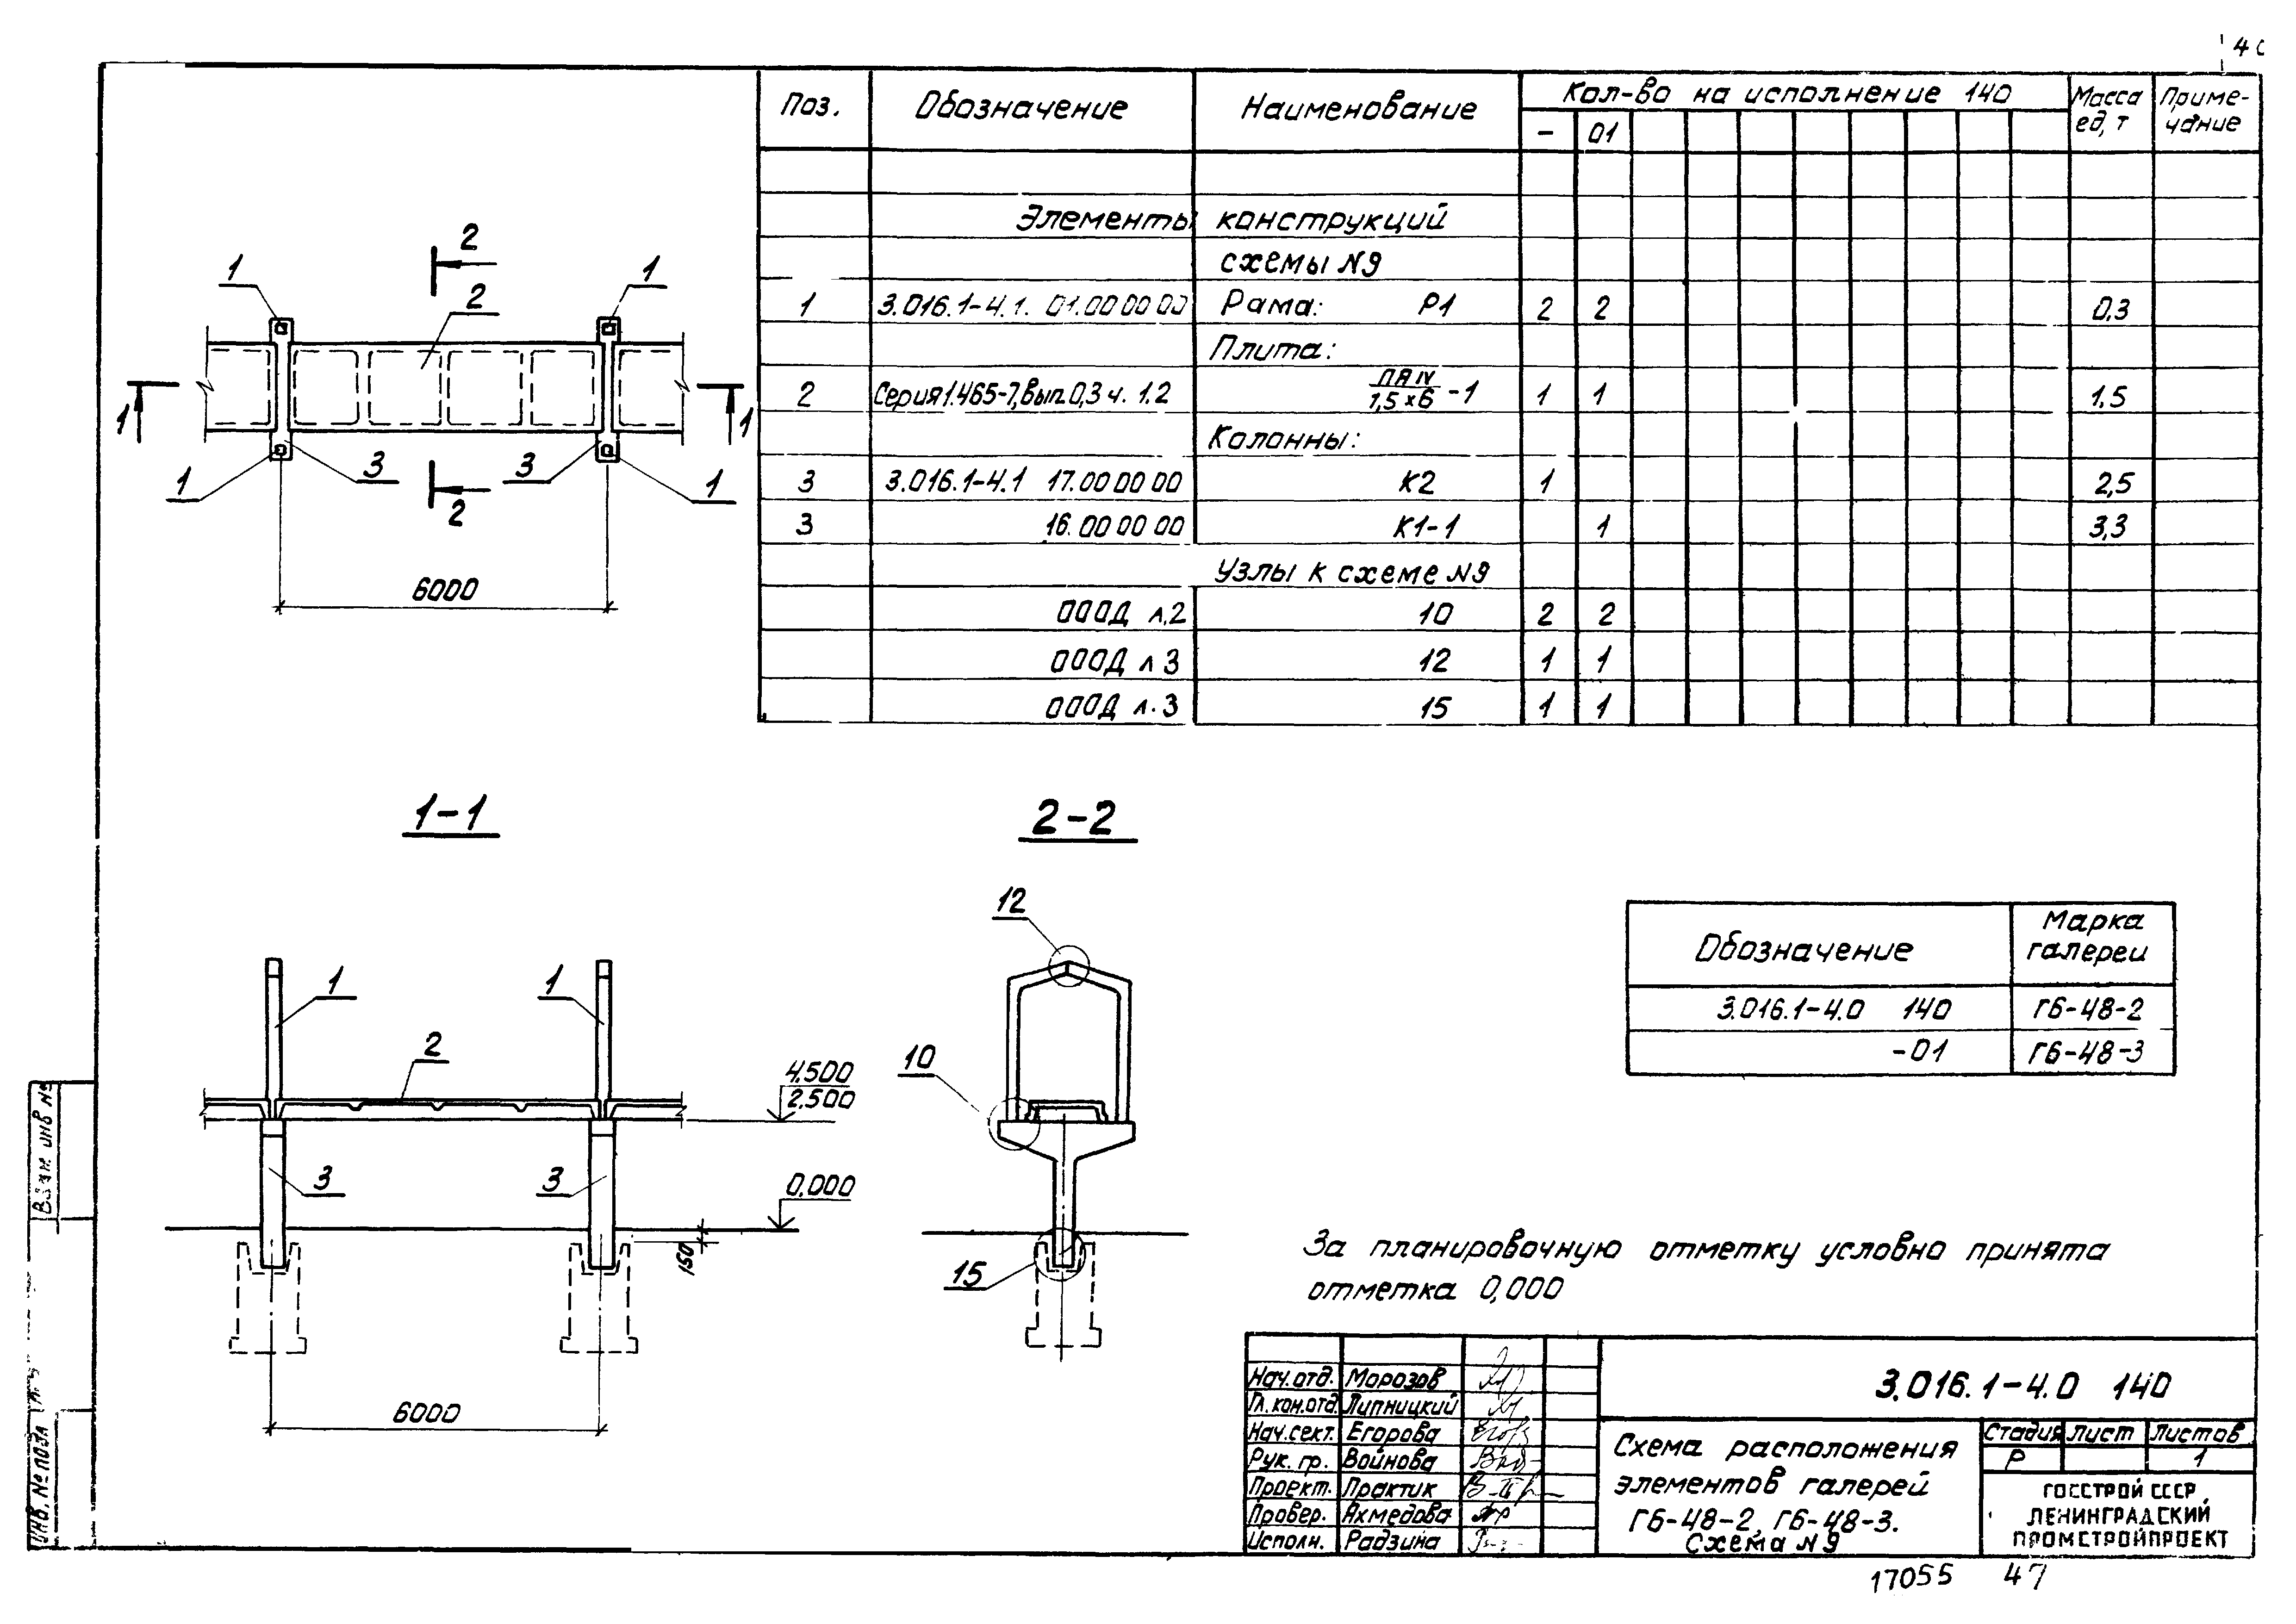 Поз.
Обозначение
Наименование
Кол-во на исполнение 140
Масса ед, т
Приме-чание
- 01
Элементы конструкций
схемы N9
1 3.016.1-4.1. 01.00 00 00 Рама: Р1 2 2 0,3
Плита:
2 Серия 1.465-7, вып. 0,3 ч. 1.2 ПАIV/1,5х6 -1 1 1 1,5
Колонны:
3 3.016.1-4.1 17.00 00 00 К2 1 2,5
3 16.00 00 00 К1-1 1 3,3
Узлы к схеме N9
000Д л.2 10 2 2
000Д л 3 12 1 1
000Д л.3 15 1 1
2
1
1
2
1
1
1
3
3
1
2
6000
1-1
2-2
1
1
2
4.500
2,500
3
3
0,000
150
6000
12
10
15
Обозначение
Марка
галереи
3.016.1-4.0 140 Г6-48-2
-01 Г6-48-3
За планировочную отметку условно принята
отметка 0,000
Нач.отд. Морозов
Гл.кон.отд. Липницкий
Нач.сект. Егорова
Рук. гр. Войнова
Проект. Практик
Провер. Ахмедова
Исполн. Радзина
3.016.1-4.0 140
Схема расположения
элементов галерей
Г6-48-2, Г6-48-3.
Схема N9
Стадия Лист Листов
Р 1
ГОССТРОЙ СССР
ЛЕНИНГРАДСКИЙ
ПРОМСТРОЙПРОЕКТ
17055 47
Взам инв №
Инв. № подл